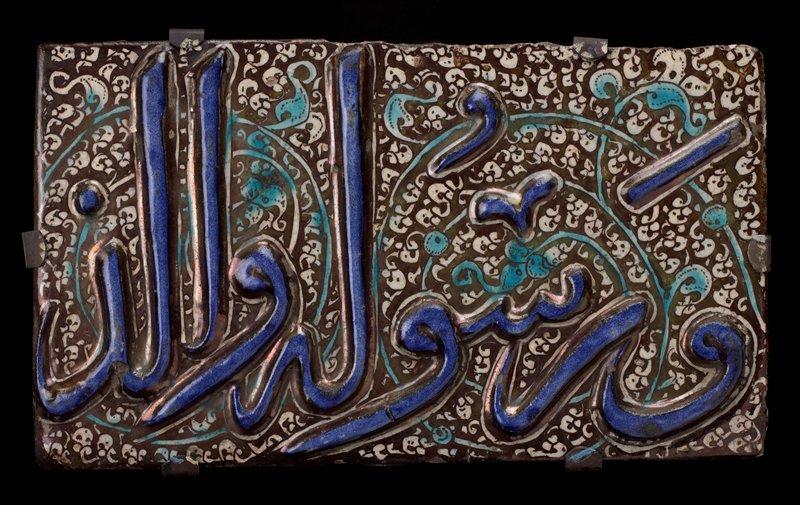 وَرسُوله والذ